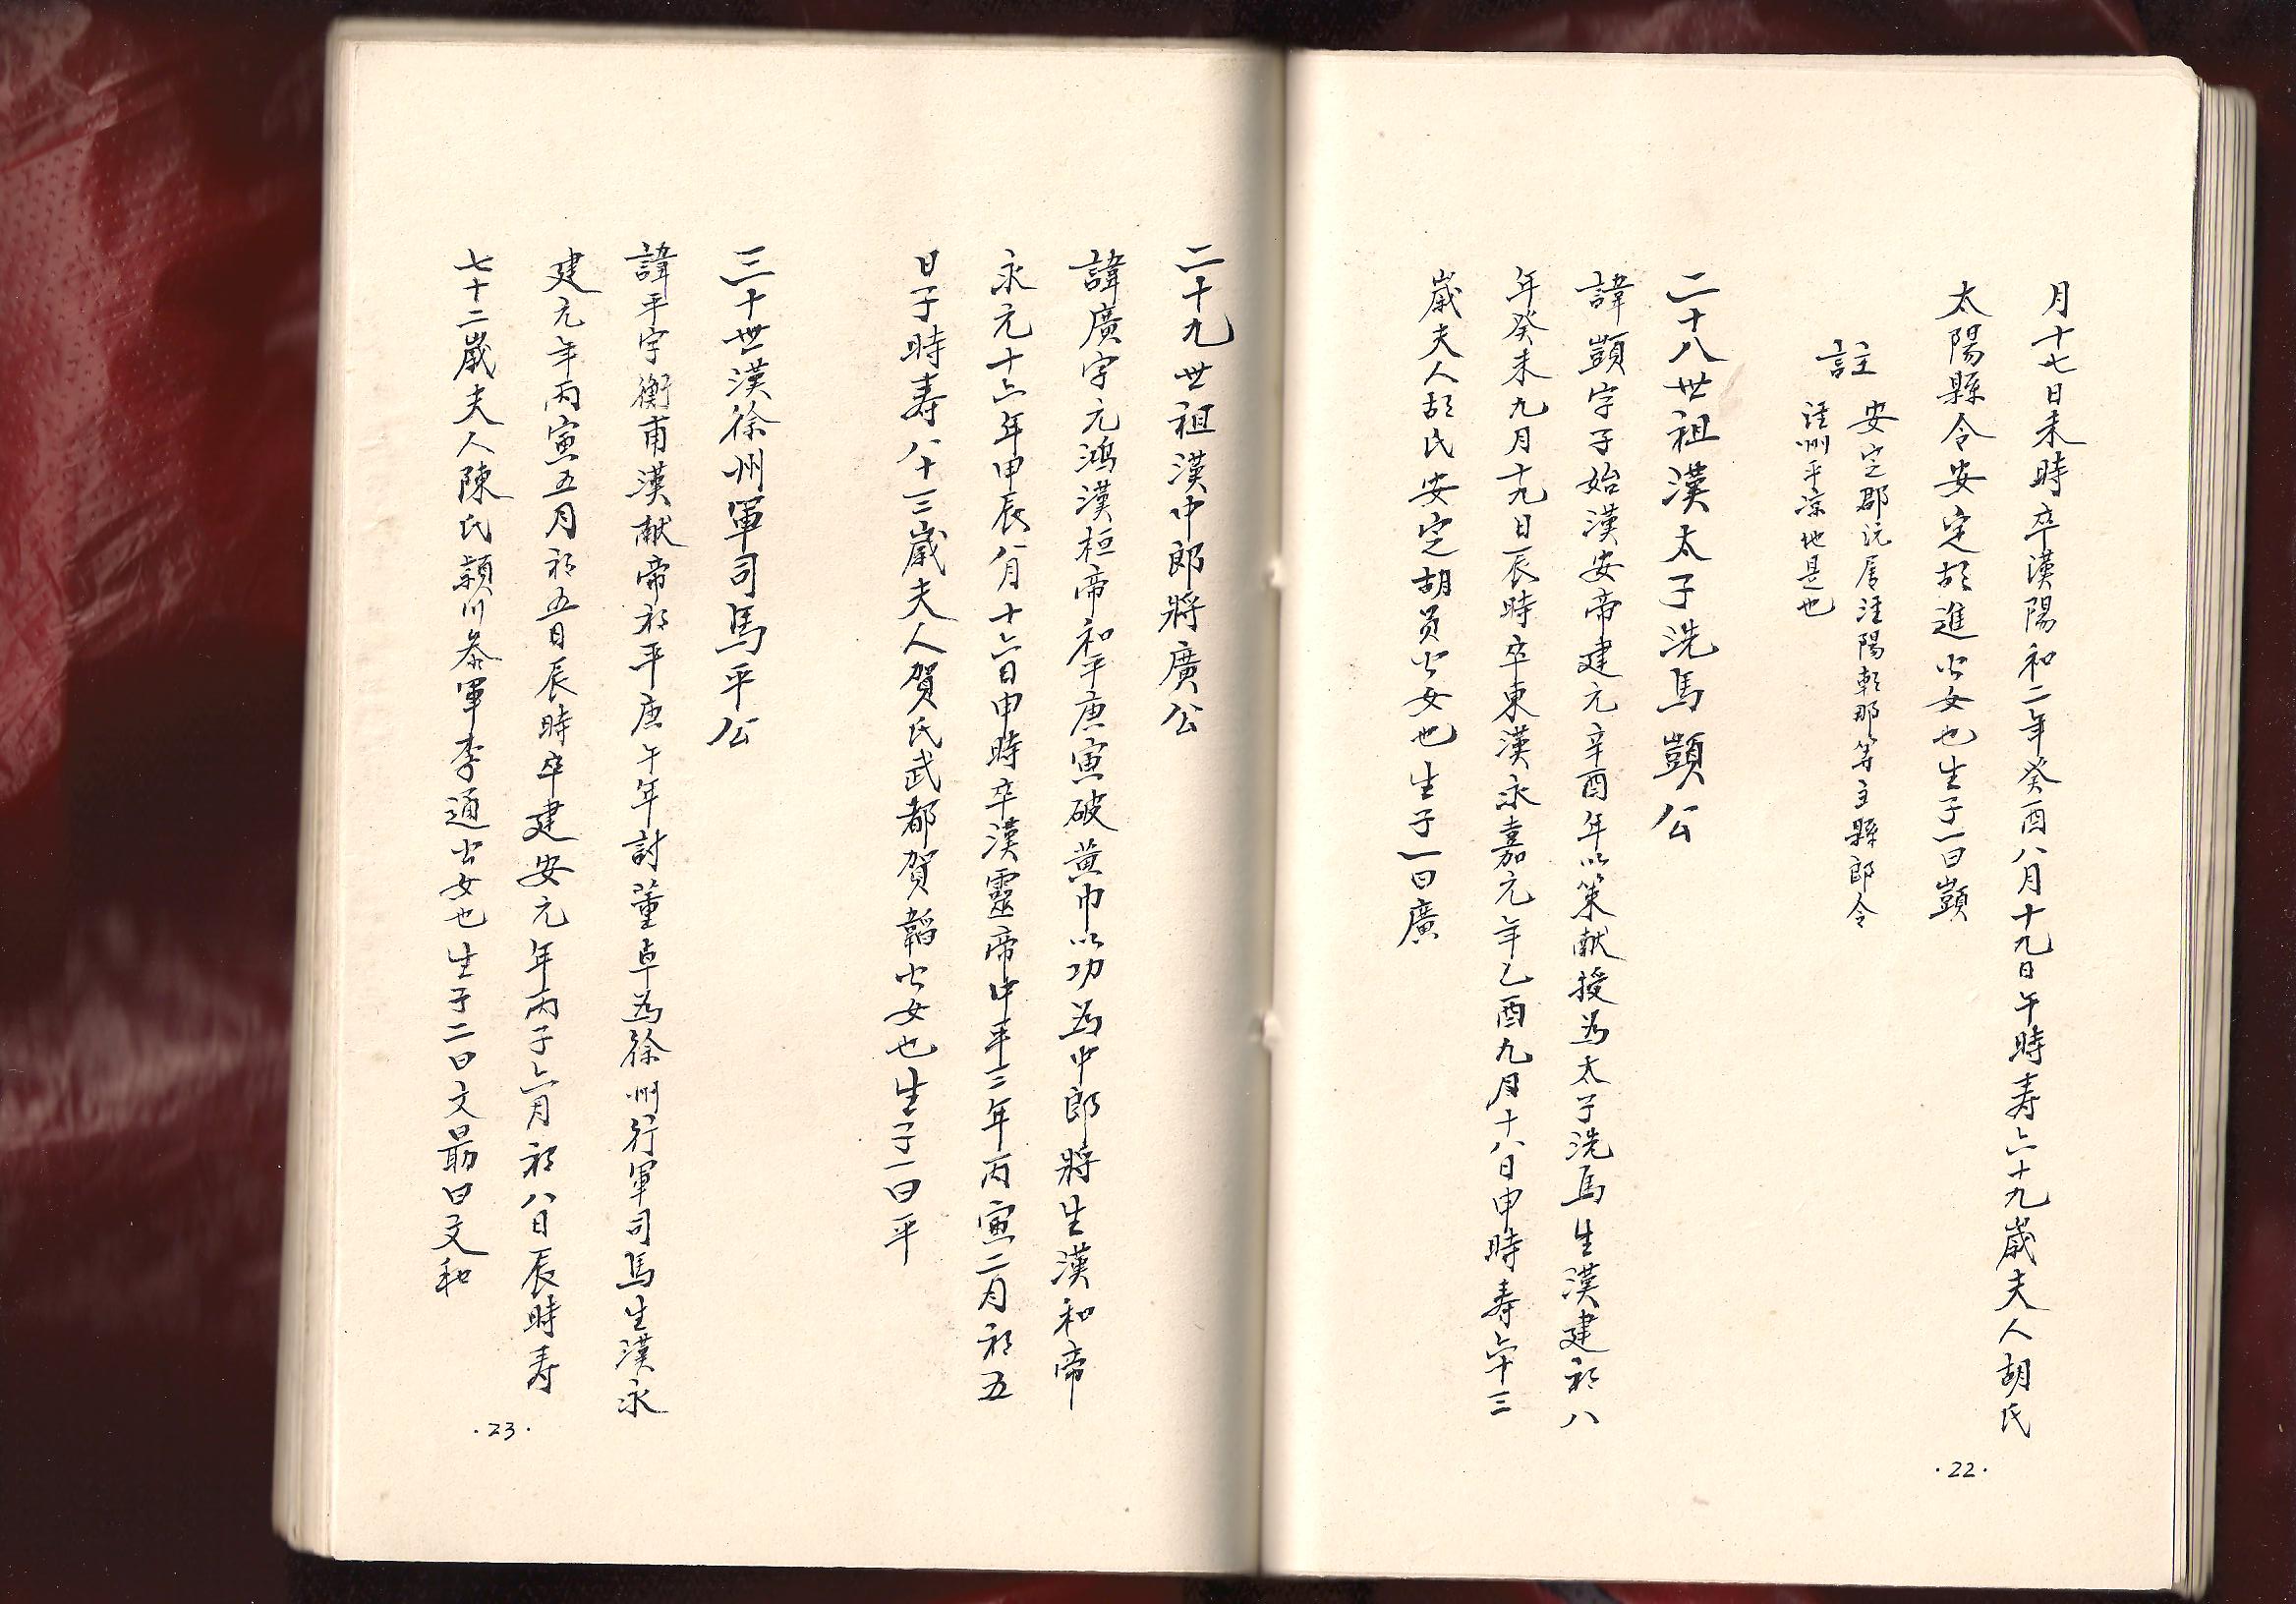 月十七日未時卒漢陽和二年癸酉八月十九日午時寿六十九歲夫人胡氏
太陽縣令安定胡進公女也生子一曰顗
註
安定郡沅屬涇陽乾那等主縣郎令
涇州平涼地是也
二十八世祖漢太子洗馬顗公
諱顗字子始漢安帝建元辛酉年以策献授為太子洗馬生漢建初八
年癸未九月十九日辰時卒東漢永嘉元年乙酉九月十八日申時寿六十三
歲夫人胡氏安定胡員公女也生子一曰廣
·22·
二十九世祖漢中郎將廣公
諱廣字元鴻漢桓帝和平庚寅破黃巾以功為中郎將生漢和帝
永元十六年甲辰八月十六日申時卒漢靈帝中平三年丙寅二月初五
日子時寿八十三歲夫人賀氏武都賀韜公女也生子一曰平
三十世漢徐州軍司馬平公
諱平字衡甫漢献帝初平庚午年討董卓為徐州行軍司馬生漢永
建元年丙寅五月初五日辰時卒建安元年丙子六月初八日辰時寿
七十二歲夫人陳氏穎川叅軍李通公女也生子二曰文勗曰文和
·23·